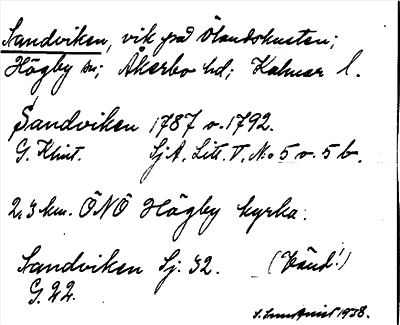 Sandviken, vik på Ölandskusten;
Högby sn; Åkerbo hd; Kalmar l.
Sandviken 1787 o. 1792.
G. Klint. SjA. Litt. V. No 5 o. 5 b.
2,3 km. ÖNÖ Högby kyrka.
Sandviken Sj. 32. (Vänd!)
G. 22.
1938.